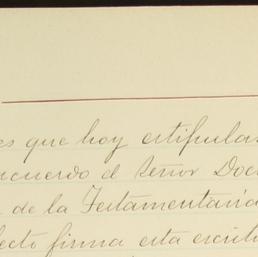 es que hoy estipulas
acuerdo el Señor Doc
de la Testamentaria
fecto firma esta escritu